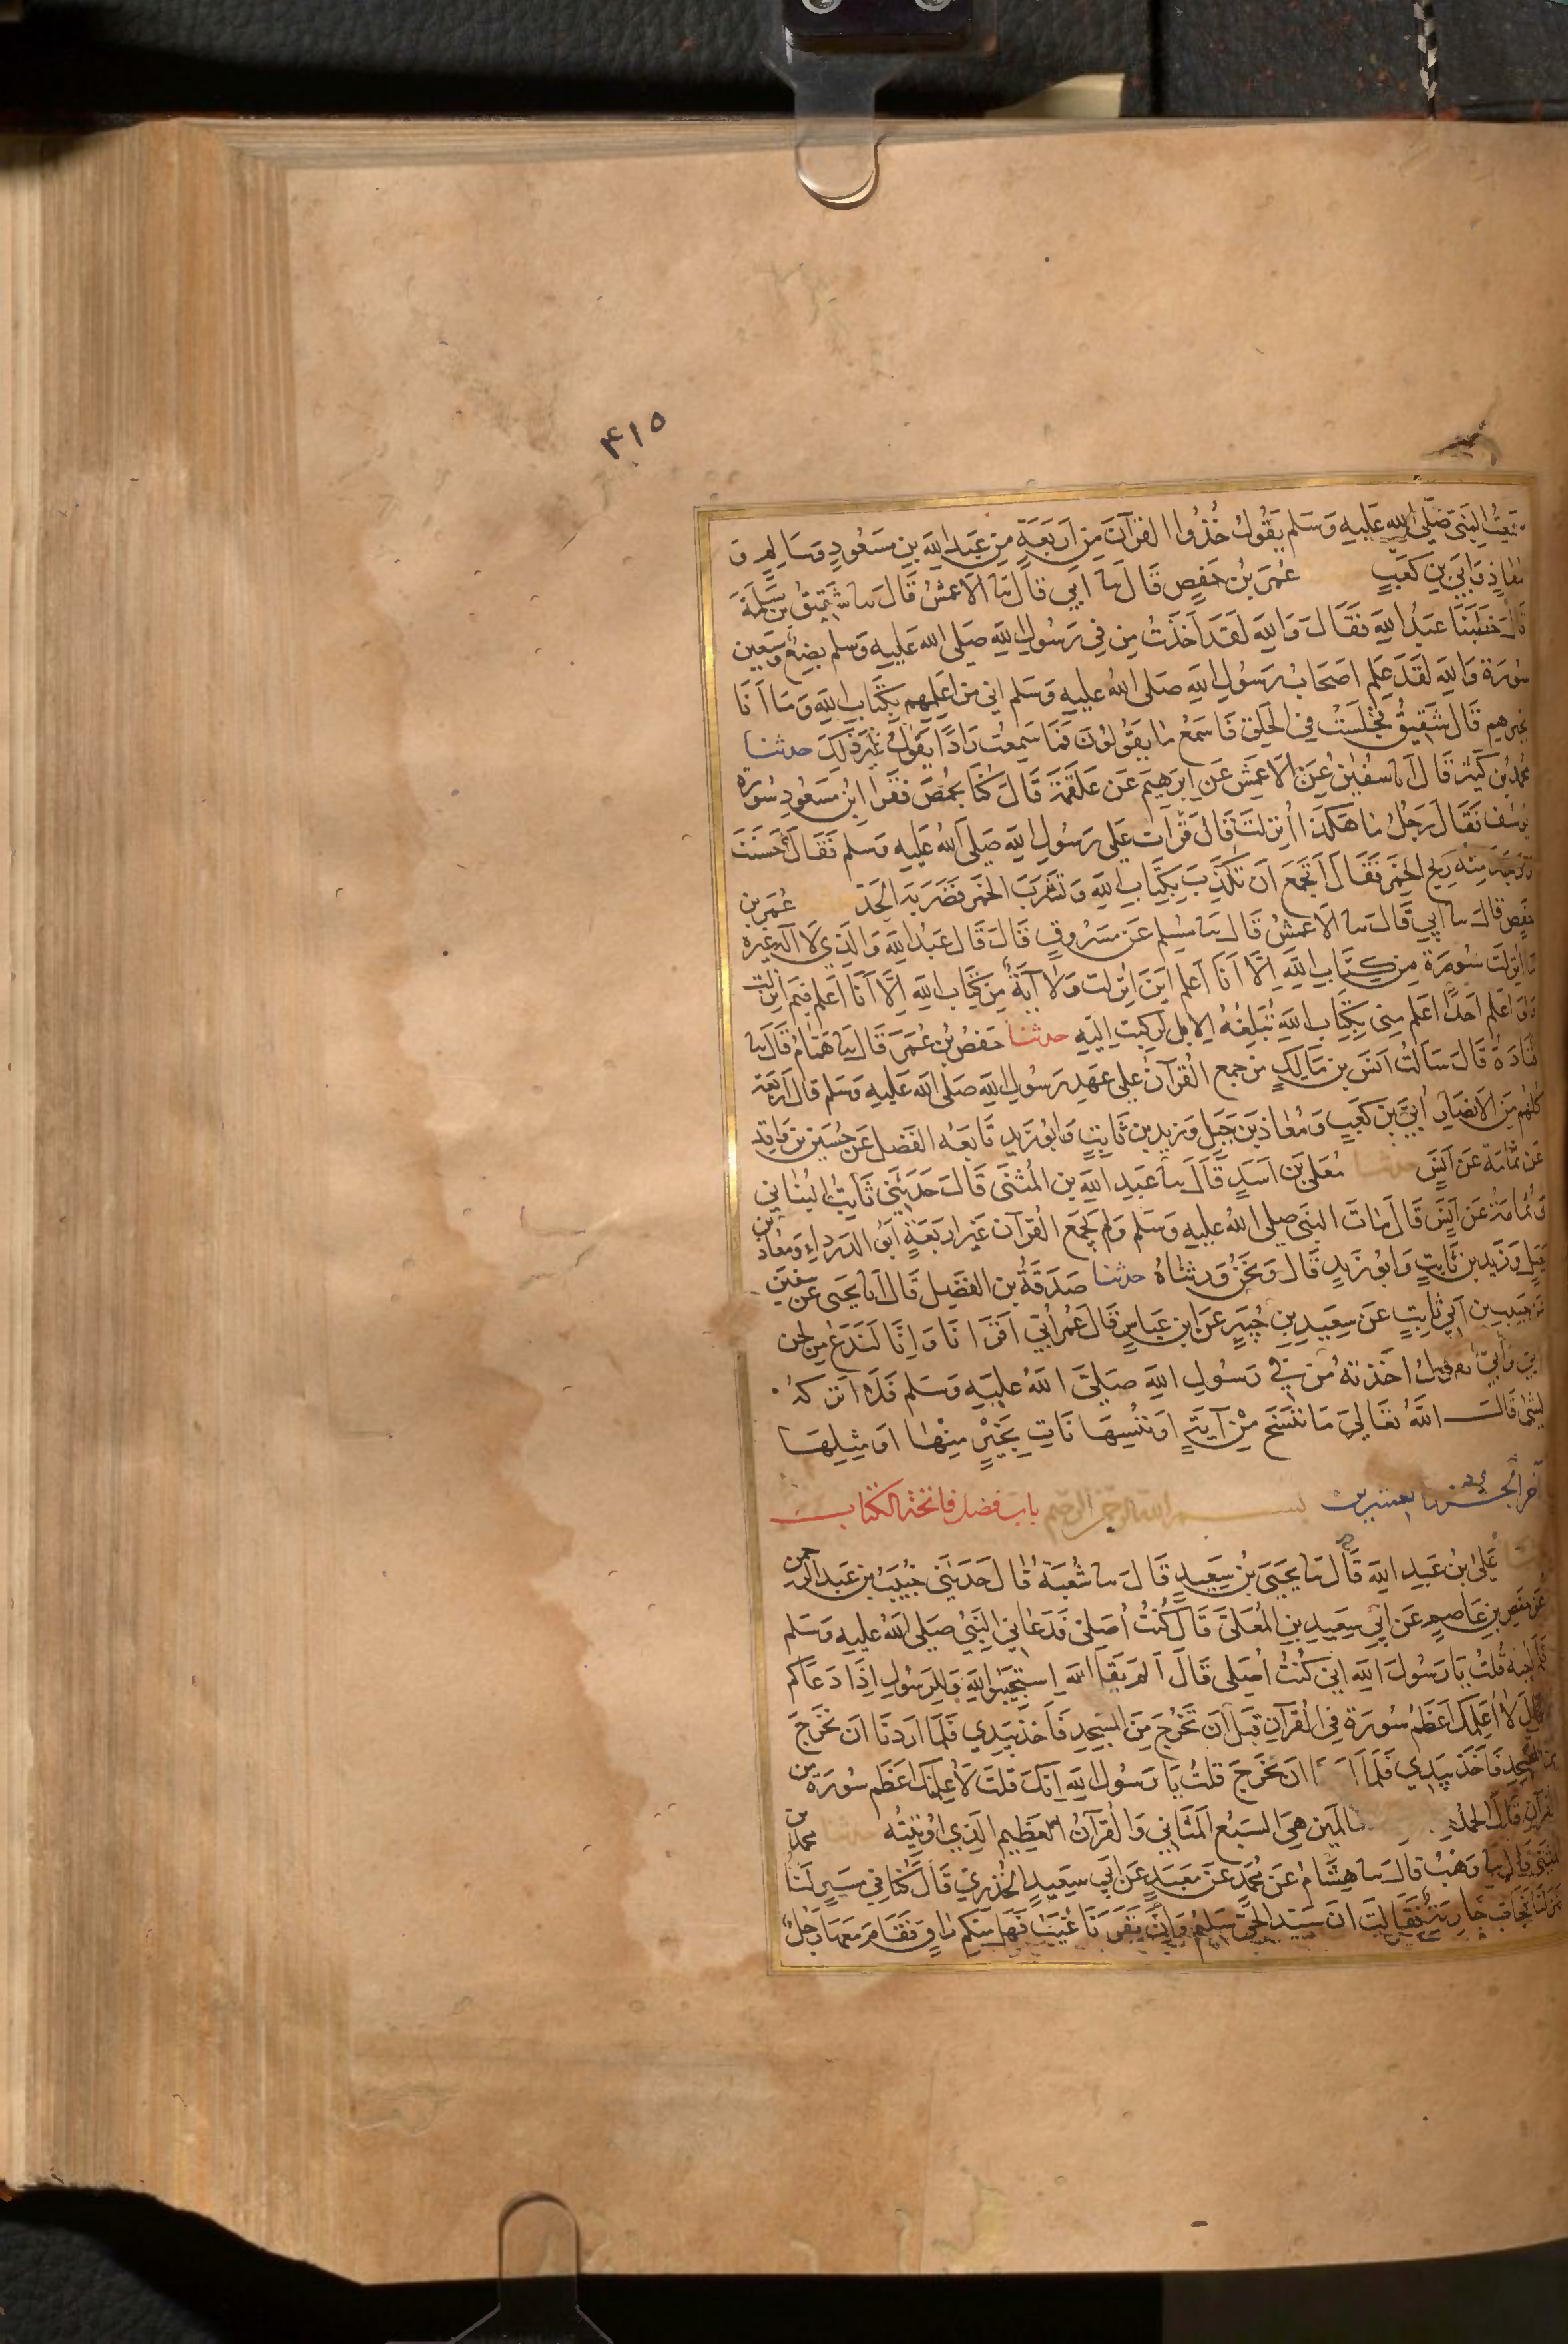 ٤١٥
سمعت النبي صلى الله عليه وسلم يقول خذوا القرآن من اربعة من عبد الله بن مسعود وسالم و
معاذ وابي بن كعب عمر بن حفص قال نا ابي قال نا الاعمش قال نا شقيق بن سلمة
قال خطبنا عبد الله فقال والله لقد اخذت من في رسول الله صلى الله عليه وسلم بضع وسبعين
سورة والله لقد علم اصحاب رسول الله صلى الله عليه وسلم اني من اعلمهم بكتاب الله وما انا
بخيرهم قال شقيق فجلست في الحلق فاسمع ما يقولون فما سمعت رادا يقول غير ذلك حدثنا
محمد بن كثير قال انا سفين عن الاعمش عن ابرهيم عن علقمة قال كنا بحمص فقرا ابن مسعود سورة
يوسف فقال رجل ما هكذا انزلت قال قرات على رسول الله صلى الله عليه وسلم فقال احسنت
ووجد منه ريح الخمر فقال اتجمع ان تكذب بكتاب الله وتشرب الخمر فضربه الحد عمر بن
حفص قال نا ابي قال نا الاعمش قال نا مسلم عن مسروق قال قال عبد الله والذي لا اله غيره
ما انزلت سورة من كتاب الله الا انا اعلم اين انزلت ولا آية من كتاب الله الا انا اعلم فيم انزلت
ولو اعلم احدا اعلم مني بكتاب الله تبلغه الابل لركبت اليه حدثنا حفص بن عمر قال نا همام قال نا
قتادة قال سالت انس بن مالك من جمع القرآن على عهد رسول الله صلى الله عليه وسلم قال اربعة
كلهم من الانصار ابي بن كعب ومعاذ بن جبل وزيد بن ثابت وابو زيد تابعه الفضل عن حسين بن واقد
عن ثمامة عن انس حدثنا معلى بن اسد قال نا عبد الله بن المثنى قال حدثني ثابت البناني
وثمامة عن انس قال مات النبي صلى الله عليه وسلم ولم يجمع القرآن غير اربعة ابو الدرداء ومعاذ بن
جبل وزيد بن ثابت وابو زيد قال ونحن ورثناه حدثنا صدقة بن الفضل قال انا يحيى عن سفين
عن حبيب بن ابي ثابت عن سعيد بن جبير عن ابن عباس قال عمر ابي اقرانا وانا لندع من لحن
ابي وابي يقول اخذته من في رسول الله صلى الله عليه وسلم فلا اتركه
لشئ قال الله تعالى ما ننسخ من آية او ننسها نات بخير منها او مثلها
آخر الجزء العشرين بسم الله الرحمن الرحيم باب فضل فاتحة الكتاب
علي بن عبد الله قال نا يحيى بن سعيد قال نا شعبة قال حدثني خبيب بن عبد الرحمن
عن حفص بن عاصم عن ابي سعيد بن المعلى قال كنت اصلي فدعاني النبي صلى الله عليه وسلم
فلم اجبه قلت يا رسول الله اني كنت اصلي قال الم يقل الله استجيبوا لله وللرسول اذا دعاكم
لاعلمك اعظم سورة في القرآن قبل ان تخرج من المسجد فاخذ بيدي فلما اردنا ان نخرج
من المسجد فاخذ بيدي فلما ان نخرج قلت يا رسول الله انك قلت لاعلمنك اعظم سورة من
القرآن قال الحمد لله العالمين هي السبع المثاني والقرآن العظيم الذي اوتيته محمد بن
المثنى قال نا وهب قال نا هشام عن محمد عن معبد عن ابي سعيد الخدري قال كنا في مسير لنا
فنزلنا فجاءت جارية فقالت ان سيد الحي سليم وان نفرنا غيب فهل منكم راق فقام معها رجل